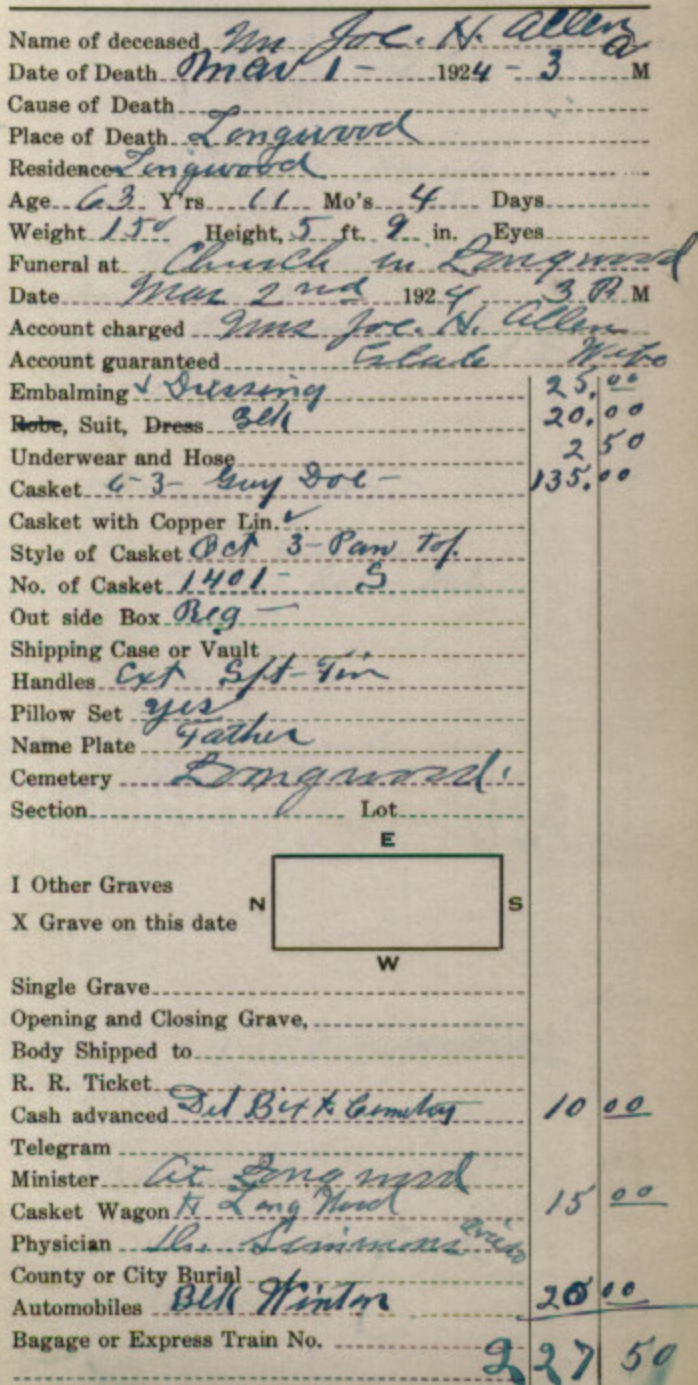 Name of deceased Mr Joe. H. Allen
Date of Death Mar 1 - 1924 - 3 a M
Cause of Death
Place of Death Longwood
Residence Longwood
Age 63 Y'rs 11 Mo's 4 Days
Weight 150 Height, 5 ft. 9 in. Eyes
Funeral at Church in Longwood
Date Mar 2nd 1924 3 P. M
Account charged Mrs Joe. H. Allen
Account guaranteed Estate
Embalming & Dressing 25.00
Robe, Suit, Dress Blk 20.00
Underwear and Hose 2 50
Casket 6-3- Guy Doe - 135.00
Casket with Copper Lin. ✓
Style of Casket Oct 3-Pan Top
No. of Casket 1401- S
Out side Box Reg -
Shipping Case or Vault
Handles Ext
Pillow Set yes
Name Plate Father
Cemetery Longwood.
Section Lot
E
I Other Graves
N S
X Grave on this date
W
Single Grave
Opening and Closing Grave,
Body Shipped to
R. R. Ticket
Cash advanced Del Box to Cemetery 10 00
Telegram
Minister At Longwood
Casket Wagon to Long Wood 15 00
Physician Dr. Simmons
County or City Burial
Automobiles Blk Winton 20 00
Bagage or Express Train No.
227 50